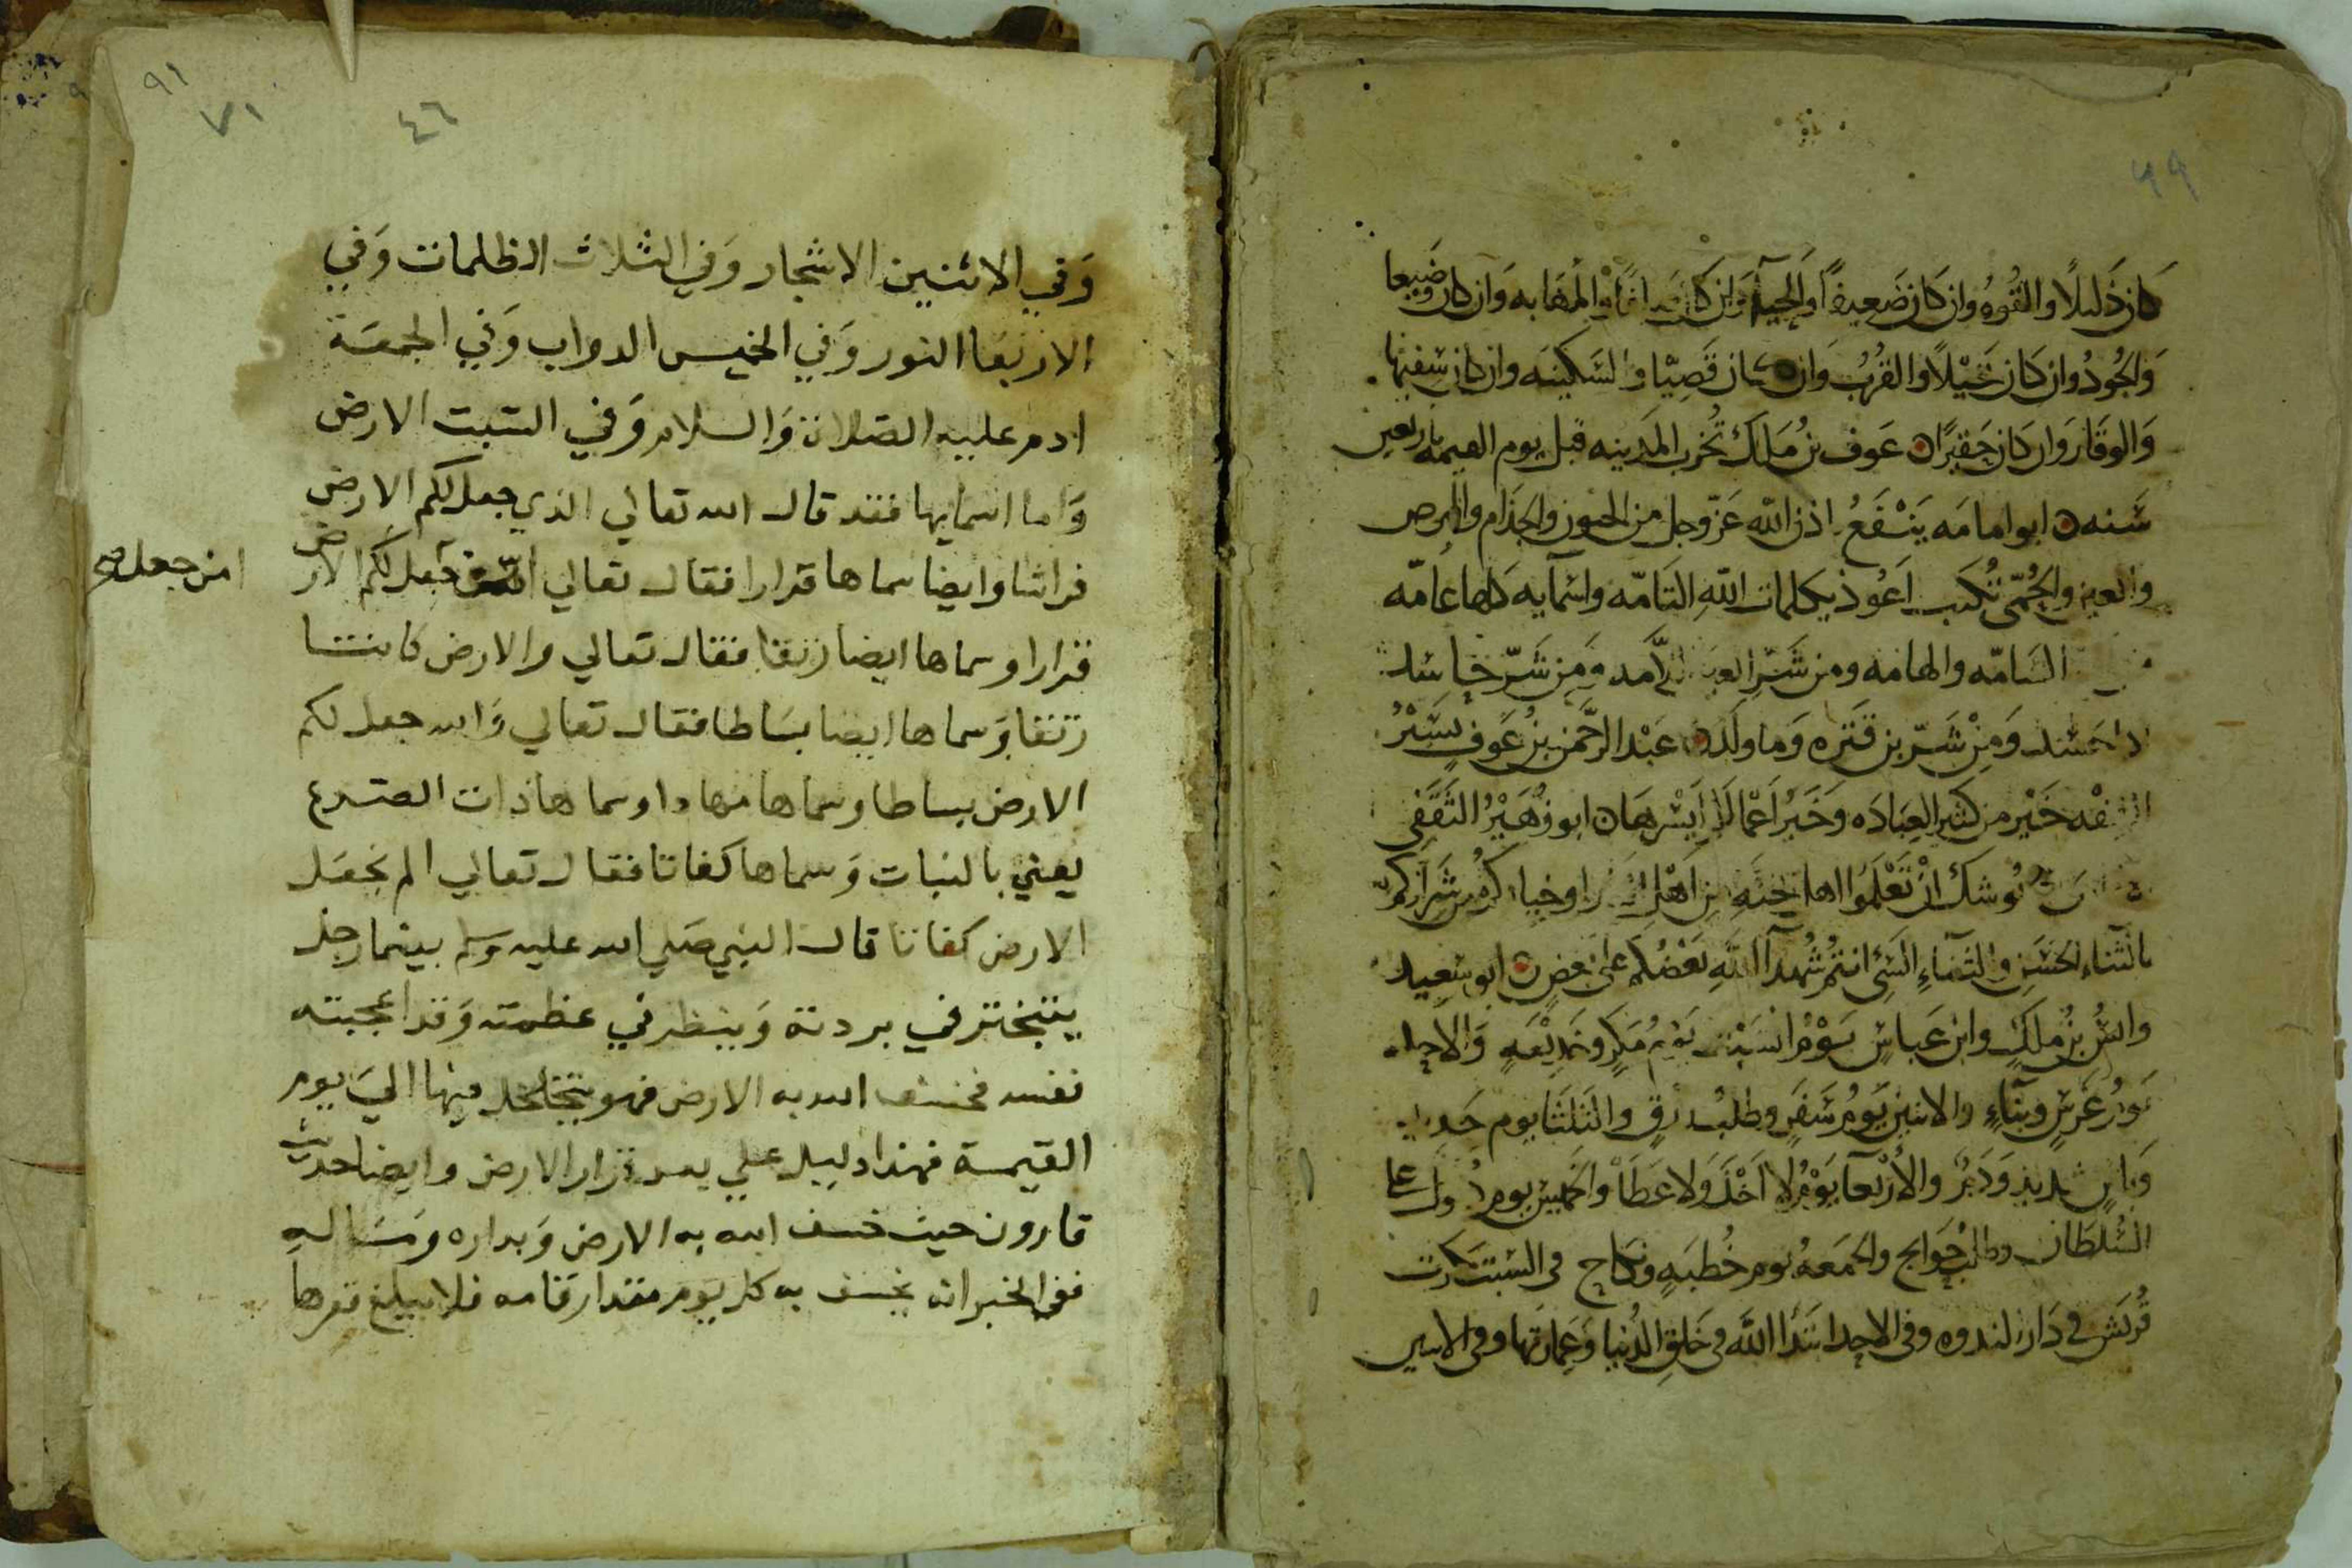 ٩٩
كان ذليلاً والقُوهُ وان كان ضعيفاً والمهابه وان كان وضيعا
وَالجُودُ وان كان بخيْلاً والقُربُ وَان كان قَصِيّا والسَكينه وان كان سَفيها
وَالوقار وَان كان حقيرًا ن عَوف بنُ مَلك تُخرب المَدينه قبل يوم القيمه باربعين
سَنه ن ابو امامَه يَنْفَعُ باذن الله عَزّ وجل من الجنون والجذام والبرص
والعين والحُمّى تُكتب اَعُوذ بكلمات اللهِ التَامّه واسْمآيه كلها عامّه
السَامّه والهامه ومن شَرّ العين اللاّمه وَمن شَرّ حاسد
اذا حسَد وَمِنْ شَرّ بن قتره وَما ولَد ن عَبْد الرَّحمن بنُ عَوفٍ يَسِيْرُ
الفقه خَيْر من كثير العِبَادَه وَخَيْرُ اَعْمالكم اَيْسَرهَا ن ابو زُهَيْرُ الثَقَفى
يُوشك انْ تَعْلَمُوا اهل الجنَّهِ من اَهْل النَّار او خياركم من شَراركم
بالثناءِ الحَسَن والثناءِ السَّئ انتُم شُهدآ اللَّهِ بَعْضُكم على بعض ن ابو سَعِيد
وانسُ بنُ ملكٍ وابن عَباسٍ يَوْمُ السَبْت يَوم مَكرٍ وخَدِيْعَهٍ وَالاحد
يَومُ غَرْسٍ وَبنآءٍ والاثنين يَومُ سَفَرٍ وطلب رزقٍ والثلثا يوم حَديد
وَباسٍ شديد وَدَمٌ والاَرْبعآ يَوْمٌ لا اَخْذَ وَلا عَطَا وَالخميس يوم دخول على
السُلطان وطلب حَوَايج والجمعهُ يوم خُطبَهٍ ونكاح فى السَبت مكرت
قُريش فى دَار الندوه وفى الاحد ابتَدَا اللَّه فى خلق الدُنيا وَعِمارتها وفى الاثنين
٩١
٧١
٤٦
وَفي الاثنين الاشجار وَفي الثلاث الظلمات وَفي
الاربعا النور وَفي الخميس الدواب وَفي الجمعَة
ادم عليه الصَلاة وَالسلام وَفي السَبت الارض
وَاما اسمايها فقد قال الله تعالي الذي جعل لكم الارض
فراشا وايضا سماها قرارا فقال تعالي جعل لكم الارض
امن جعل صح
قرارا وسماها ايضا رتقا فقال تعالي والارض كانتا
رتقا وَسماها ايضا بسَاطا فقال تعالي وَالله جعل لكم
الارض بساطا وسماها مهادا وسماها ذات الصَدع
يعني بالنبات وَسماها كفاتا فقال تعالي الم نجعَل
الارض كفاتا قال النبي صَلي الله عليه وسلم بينما رجل
يتبختر في بردته وَينظر في عظمته وَقد اعجبته
نفسه فخسف الله به الارض فهو يتجلجل فيها اليَ يوم
القيمة فهذا دليل علي بعد قرار الارض وايضا حديث
قارون حيث خسف الله به الارض وَبداره وَمَاله
ففي الخبر انه يخسف به كل يوم مقدار قامه فلا يبلغ قعرها